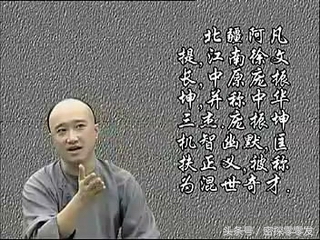 北疆阿凡
提,江南徐文
长,中原庞振
坤,并称中华
三杰,庞振坤
机智幽默,匡
扶正义,被称
为混世奇才.
头条号/密探零零发